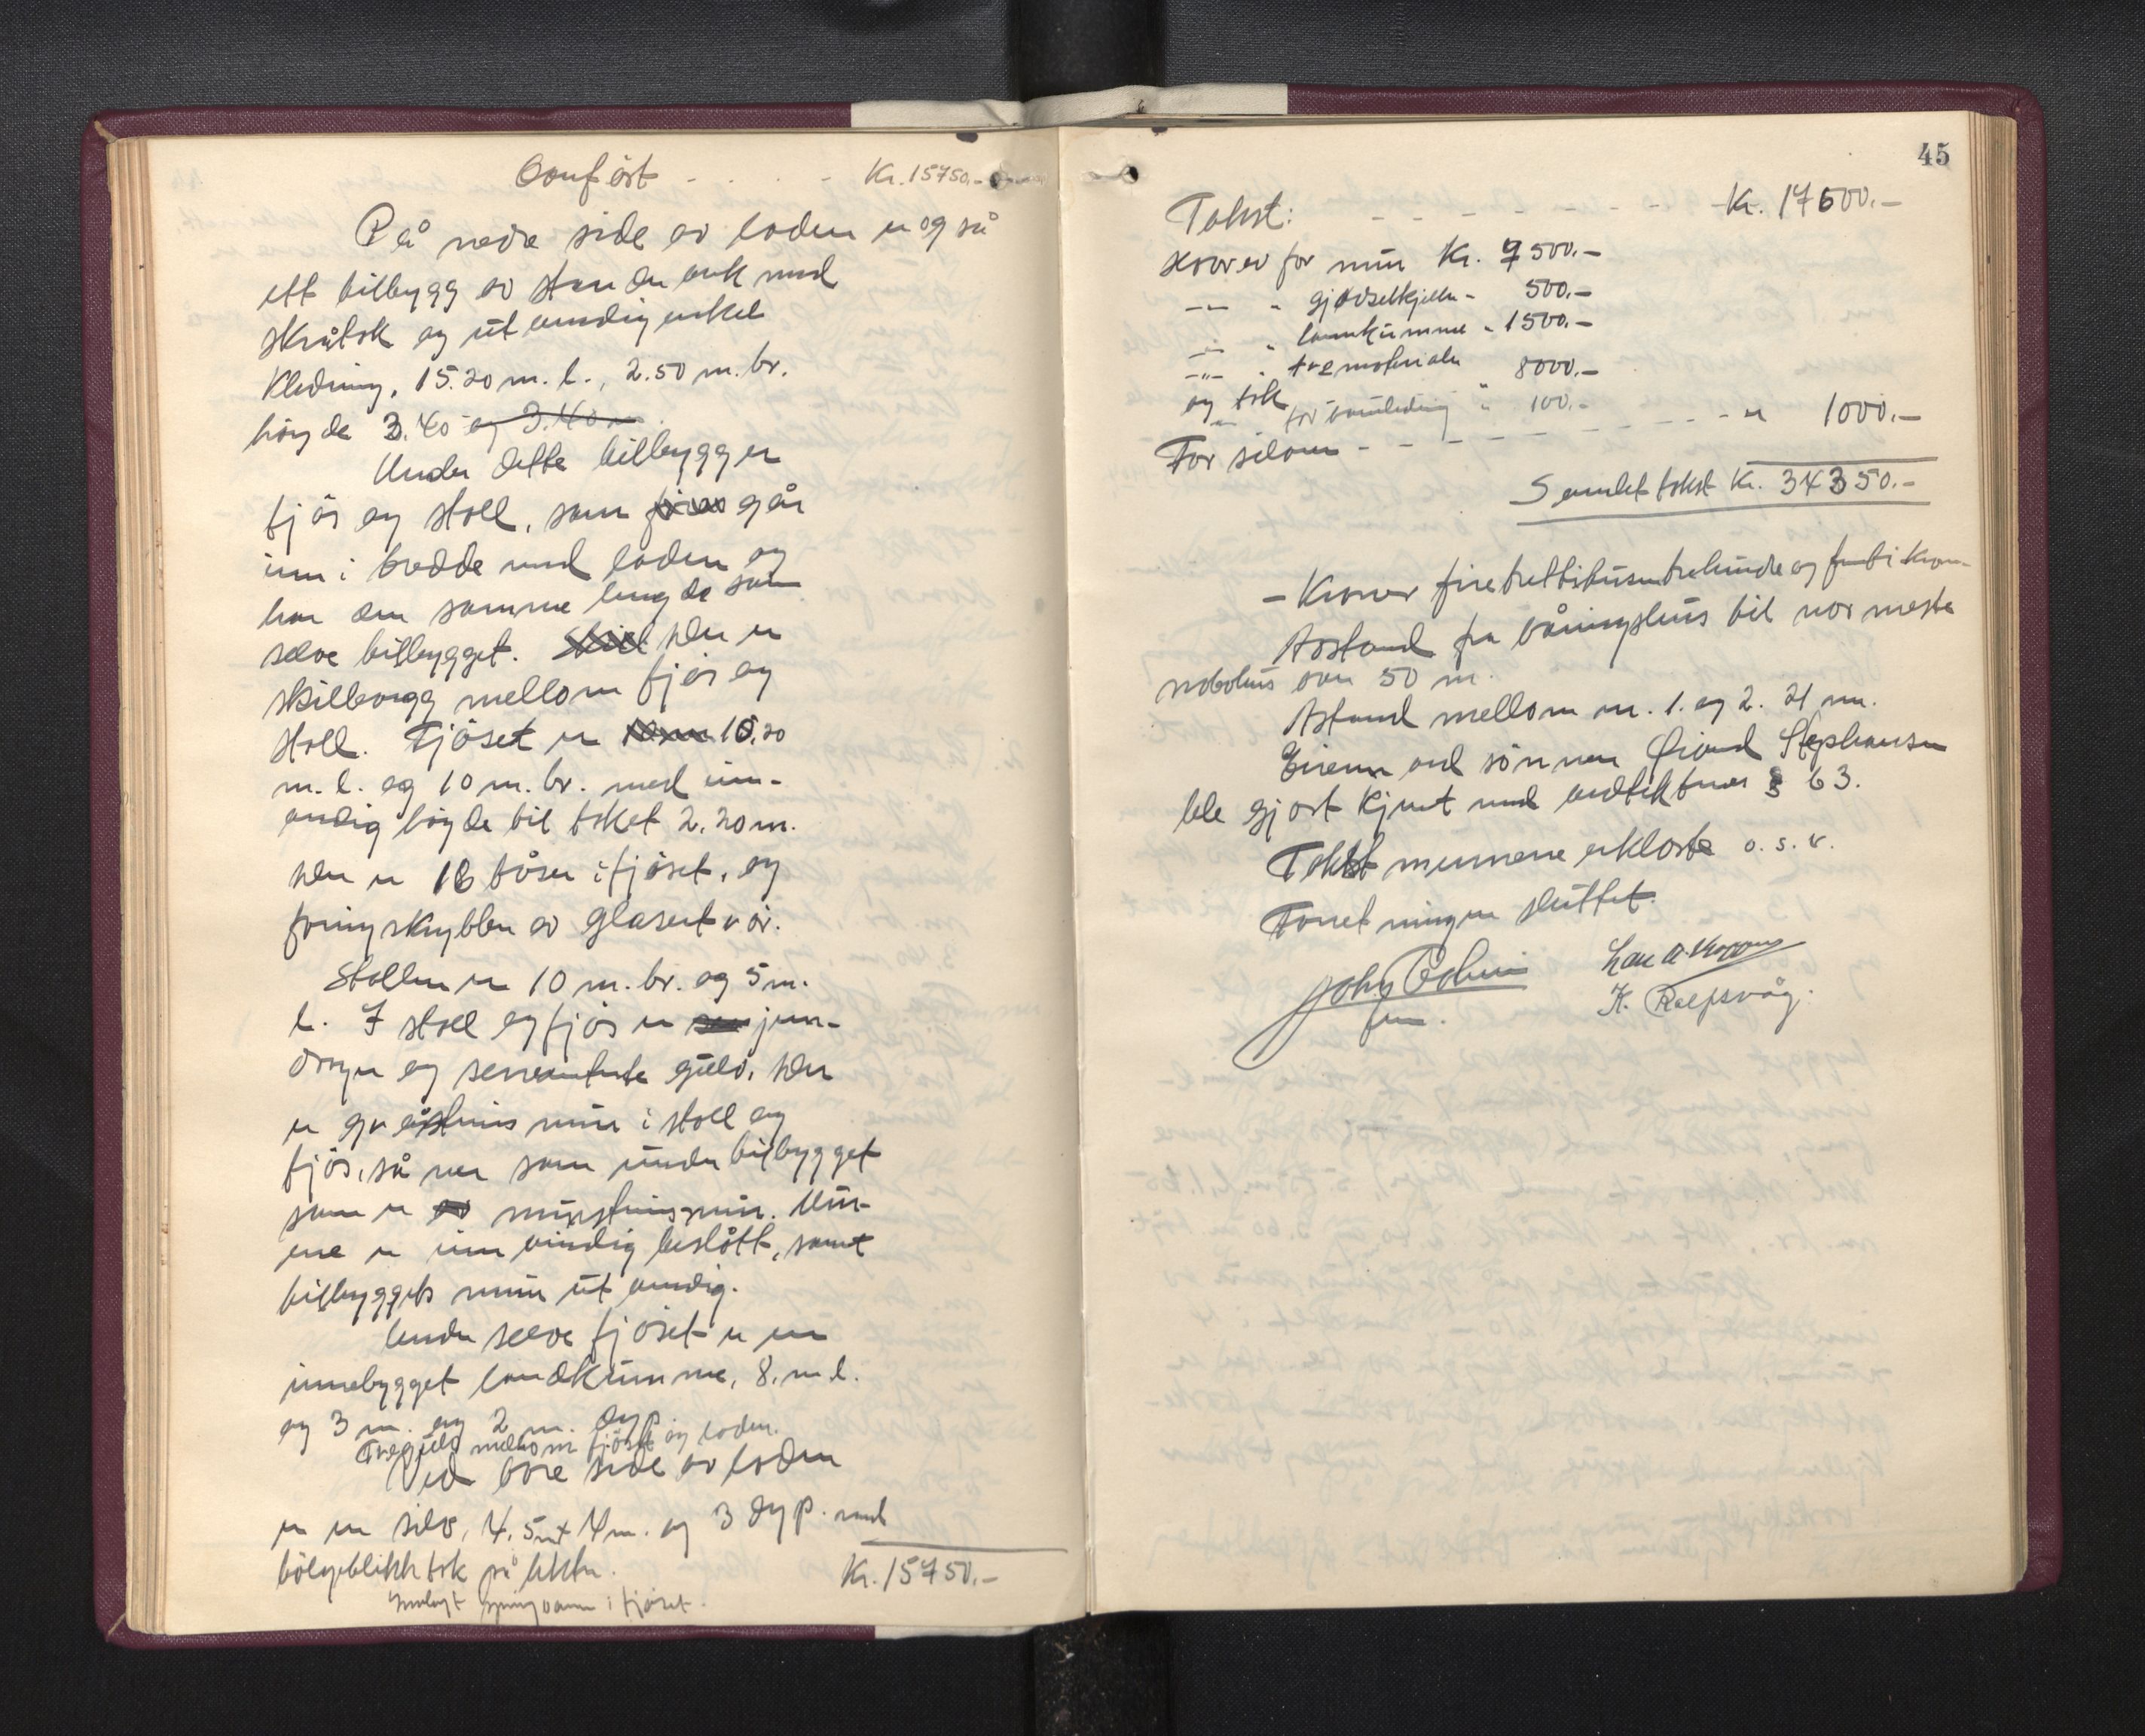 Overført - . . . - Kr. 15750.-
På nedre side av løden er også
ett tilbygg av stenderverk med
skråtak og utvendig enkel
kledning, 15.20 m. l., 2.50 m. br.
høyde 3.40 og 3.40 m
Under dette tilbygg er
fjös og stall, som går
inn i bredde med løden og
har den samme lengde som
selve tilbygget. Der er
skillevegg mellom fjös og
stall. Fjöset er 10.20
m. l. og 10 m. br. med inn-
vendig höyde til taket 2.20 m.
Der er 16 båser i fjöset, og
foringskrybber av glasert rör.
Stallen er 10 m. br. og 5 m.
l. I stall og fjös er jern-
dragere og sementerte gulv. Der
er gråstens mur i stall og
fjös, så nær som under tilbygget
som er murstensmur. Mur-
ene er innvendig beslått, samt
tilbyggets mur utvendig.
Under selve fjöset er en
innebygget landkumme, 8. m l.
og 3 m. og 2 m. dyp.
Tregulv mellom fjöset og løden.
Ved övre side av løden
er en silo, 4.5 m x 4 m. og 3 dyp. med
bölgeblikktak på lekter.
Innlagt springvann i fjöset.
Kr. 15750.-
45
Takst: - - - - - - - - Kr. 17600.-
Herav for mur Kr. 7500.-
-"- " gjødselkjeller - 500.-
-"- " landkumme - 1500.-
-"- " trematerialer 8000.-
og tak
-"- for vannledning " 100.-
For siloen - - - - - - - - - " 1000.-
Samlet takst Kr. 34350.-
- Kroner firetrettitusentrehundre og femti kron-
Avstand fra våningshus til nærmeste
nabohus over 50 m.
Avstand mellom nr. 1. og 2. 21 m.
Eieren ved sönnen Øivind Stephansen
ble gjort kjent med vedtektenes § 63.
Takstmennene erklærte o. s. v.
Forretningen sluttet.
K. Rolfsvåg.